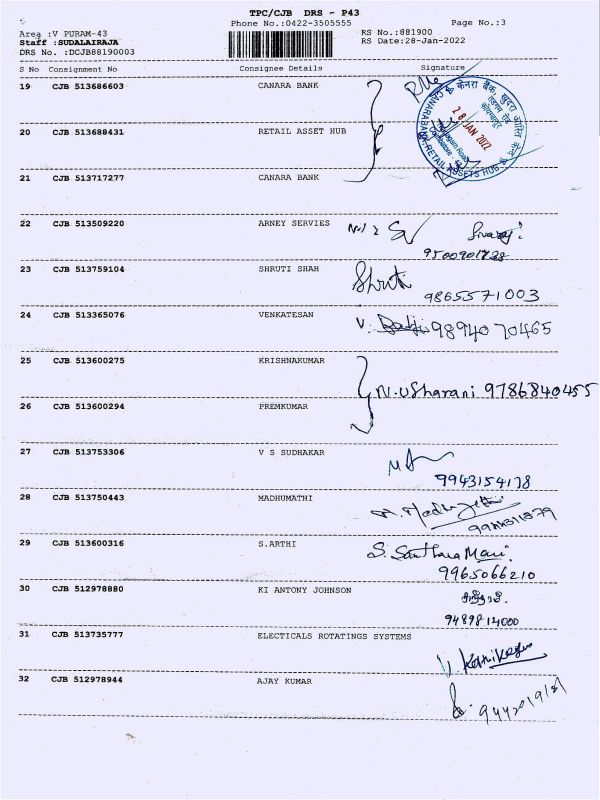 TPC/CJB DRS - P43
Phone No.:0422-3505555
Page No.:3
Area :V PURAM-43
RS No.:881900
Staff :SUDALAIRAJA
RS Date:28-Jan-2022
DRS No. :DCJB88190003
S No Consignment No Consignee Details Signature
19 CJB 513686603 CANARA BANK
केनरा बैंक, खुदरा आस्ति केन्द्र
28 JAN 2022
CANARA BANK-RETAIL ASSETS HUB
20 CJB 513688431 RETAIL ASSET HUB
21 CJB 513717277 CANARA BANK
22 CJB 513509220 ARNEY SERVIES
9500901728
23 CJB 513759104 SHRUTI SHAH Shruti
9865571003
24 CJB 513365076 VENKATESAN V. 9894070465
25 CJB 513600275 KRISHNAKUMAR
N.USharani 9786840455
26 CJB 513600294 PREMKUMAR
27 CJB 513753306 V S SUDHAKAR
9943154178
28 CJB 513750443 MADHUMATHI
29 CJB 513600316 S.ARTHI S. Santhana Mari.
9965066210
30 CJB 512978880 KI ANTONY JOHNSON
9489814000
31 CJB 513735777 ELECTICALS ROTATINGS SYSTEMS
32 CJB 512978944 AJAY KUMAR